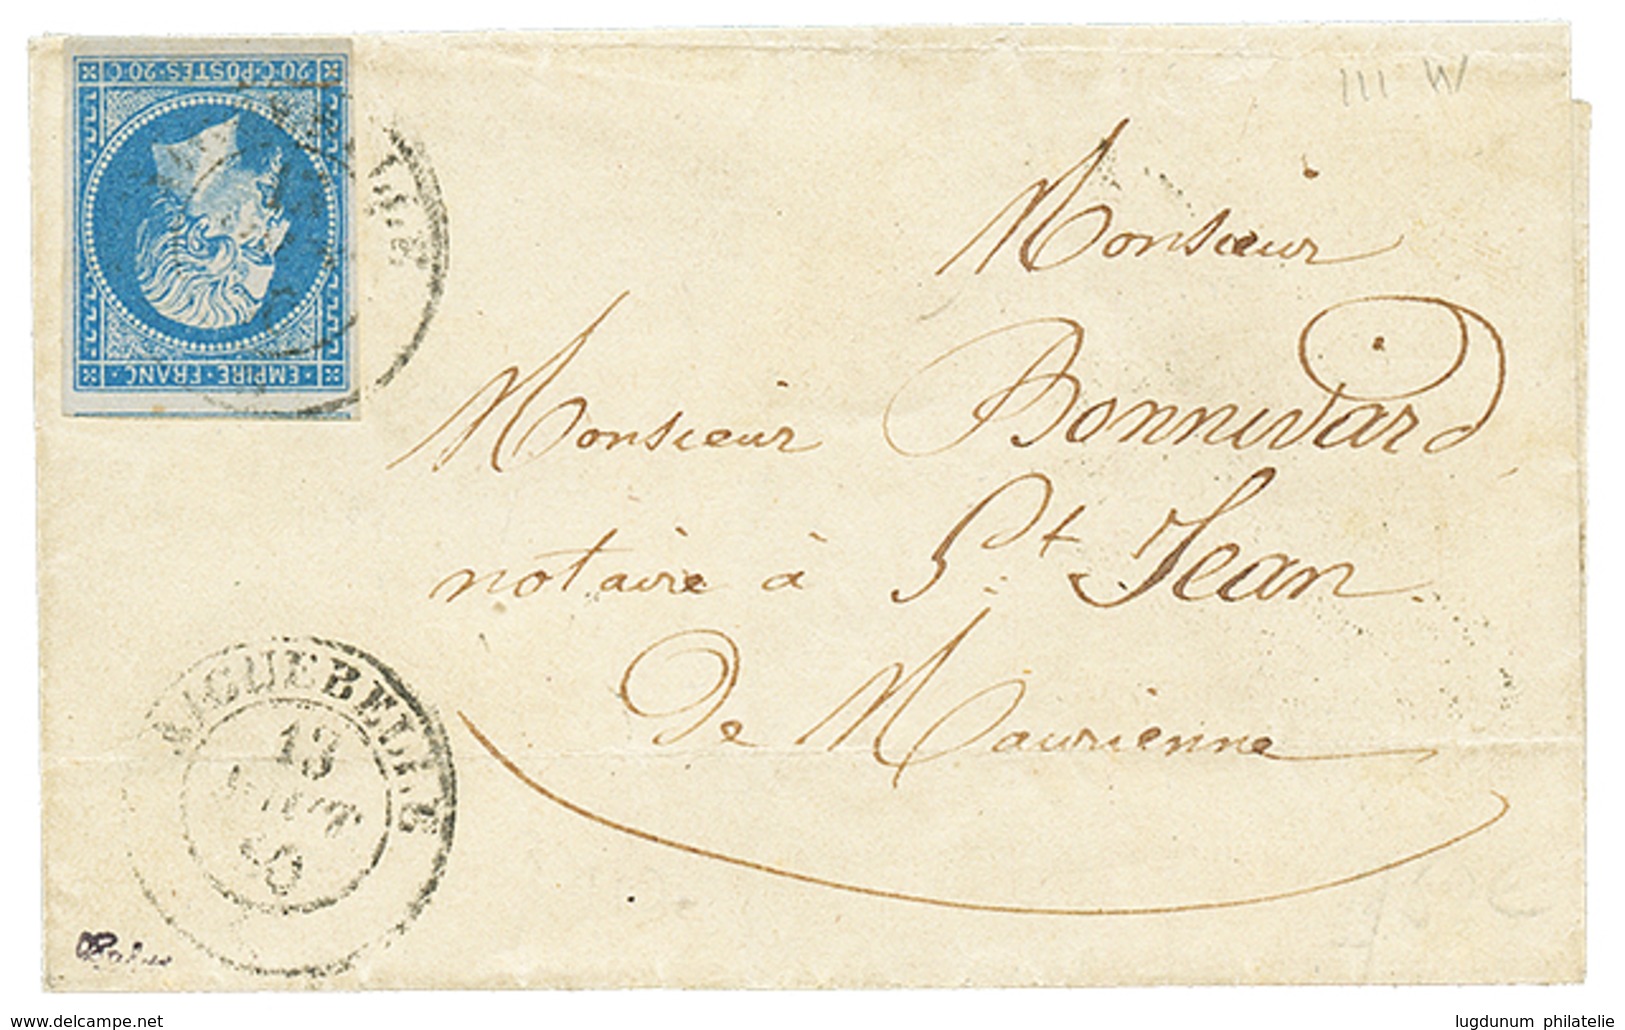 20·C·POSTES·20·C
EMPIRE·FRANC·
III W
Monsieur
Monsieur Bonnivard
notaire à St. Jean
de Maurienne
AIGUEBELLE
13
AOUT
60
www.delcampe.net
lugdunum philatelie